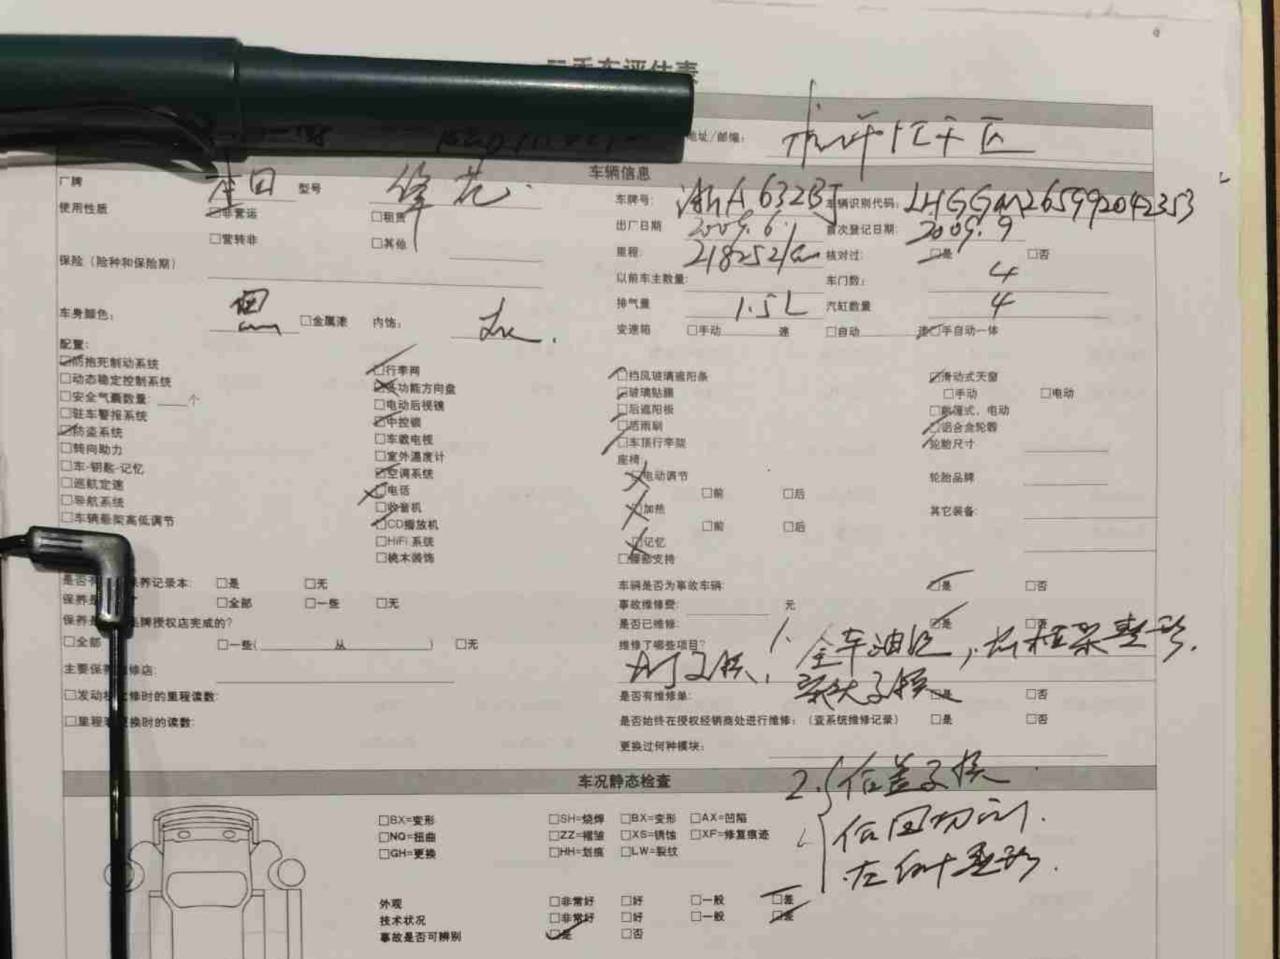 二手车评估表
地址/邮编：
车辆信息
厂牌 本田 型号 锋范 车牌号： 浙A632BJ 车辆识别代码： LHGGM265992042353
使用性质 □非营运 □租赁 出厂日期 2009.6.1 首次登记日期： 2009.9
□营转非 □其他 里程： 218252km 核对过： □是 □否
保险（险种和保险期） 以前车主数量： 车门数： 4
排气量 1.5L 汽缸数量 4
车身颜色： 黑 □金属漆 内饰： 灰 变速箱 □手动 速 □自动 速□手自动一体
配置：
□防抱死制动系统 □行李网 □挡风玻璃遮阳条 □滑动式天窗
□动态稳定控制系统 □多功能方向盘 □玻璃贴膜 □手动 □电动
□安全气囊数量： 个 □电动后视镜 □后遮阳板 □敞篷式，电动
□驻车警报系统 □中控锁 □后雨刷 □铝合金轮毂
□防盗系统 □车载电视 □车顶行李架 轮胎尺寸
□转向助力 □室外温度计 座椅：
□车-钥匙-记忆 □空调系统 □电动调节 轮胎品牌
□巡航定速 □电话 □前 □后
□导航系统 □收音机 □加热 其它装备：
□车辆悬架高低调节 □CD播放机 □前 □后
□HiFi 系统 □记忆
□桃木装饰 □腰部支持
养记录本： □是 □无 车辆是否为事故车辆： □是 □否
□全部 □一些 □无 事故维修费： 元
牌授权店完成的？ 是否已维修： □是
□全部 □一些（ 从 ） □无 维修了哪些项目？ 1. 全车油漆，
主要保 修店： 是否有维修单： □是 □否
□发动机 修时的里程读数：
□里程表 换时的读数： 是否始终在授权经销商处进行维修：（查系统维修记录） □是 □否
更换过何种模块：
车况静态检查 2.
□BX=变形 □SH=烧焊 □BX=变形 □AX=凹陷
□NQ=扭曲 □ZZ=褶皱 □XS=锈蚀 □XF=修复痕迹
□GH=更换 □HH=划痕 □LW=裂纹
外观 □非常好 □好 □一般 □差
技术状况 □非常好 □好 □一般 □差
事故是否可辨别 □是 □否